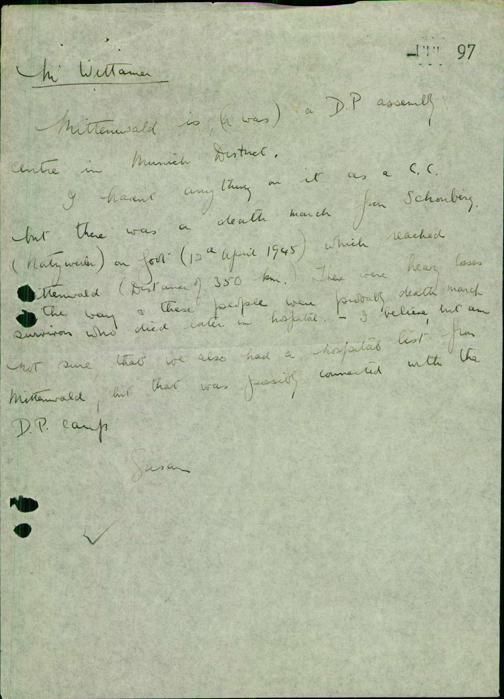 97
Mr Wittamer
Mittenwald is (or was) a D.P assembly
centre in Munich District.
I haven't anything on it as a C.C.
but there was a death march from Schonberg
(Natzweiler) on foot (12th April 1945) which reached
Mittenwald (Distance of 350 km.) There were heavy losses
the way & these people were probably death march
survivors who died later in hospital. - I believe, but am
not sure, that we also had a hospital list from
Mittenwald, but that was possibly connected with the
D.P. camp
Susan